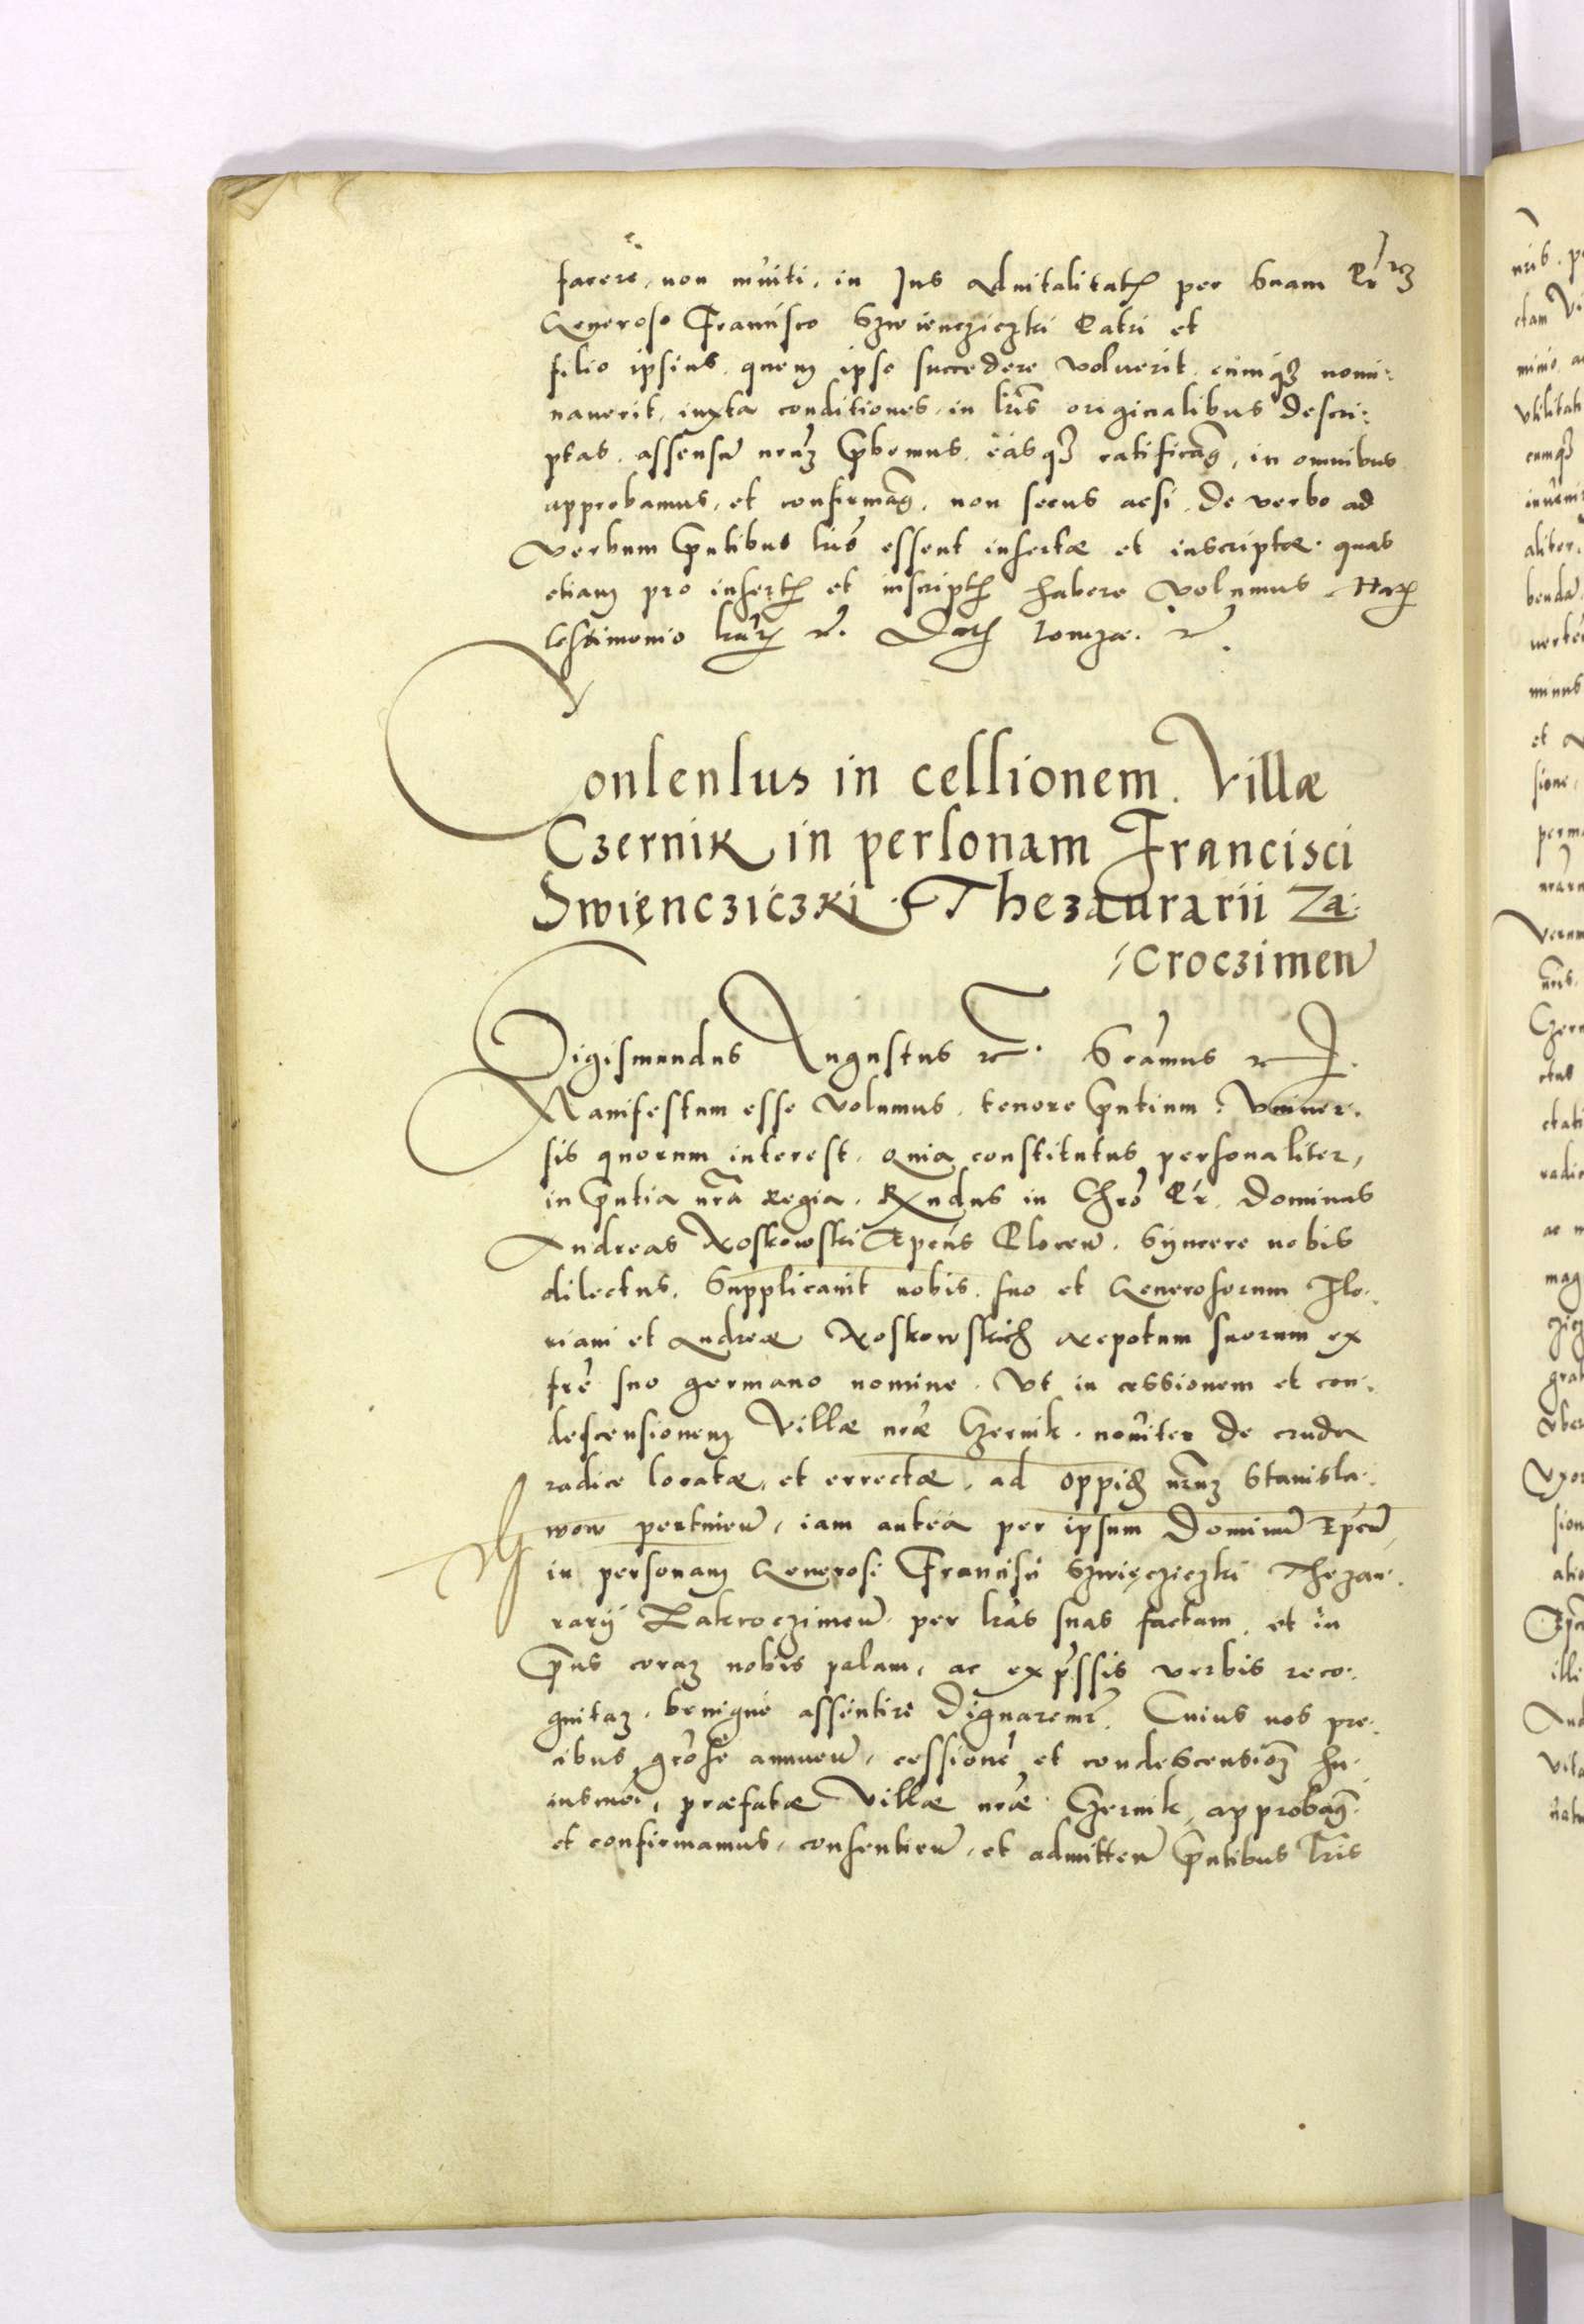 facere, non inuiti, in Ius Aduitalitatis per Suam Prtz
Generoso Francisco Szwiencziczki Patri et
filio ipsius, quem ipse succedere voluerit, eumq3 nomi:
nauerit, iuxta conditiones, in lris originalibus descri:
ptas, assensum nrum prbemus, easq3 ratificamus, in omnibus
approbamus, et confirmamus, non secus acsi de verbo ad
verbum pntibus lris essent insertæ et inscriptæ. quas
etiam pro insertis et inscriptis habere volumus. Harum
testimonio lrarum etc. Datum Lomzæ. etc.
Consensus in cessionem Villæ
Czernik in personam Francisci
Swięncziczki Thezaurarii Za:
croczimen
Sigismundus Augustus etc. Scamus etc.
Manifestum esse volumus, tenore pntium, Vniuer:
sis quorum interest, Quia constitutus personaliter,
in pntia nra Regia, Rndus in Chro Pr. Dominus
Andreas Noskowski Epcus Plocen. Syncere nobis
dilectus, Supplicauit nobis, suo et Generosorum Flo:
riani et Andreæ Noskowskich Nepotum suorum ex
fre suo germano nomine, Vt in cessionem et con:
descensionem Villæ nræ Czernik, nouiter de cruda
radice locatæ, et errectæ, ad oppidum nrum Stanisla:
wow pertinen, iam antea per ipsum Dominum Epcum,
in personam Generosi Francisci Szwięcziczki Thezau:
rarij Zakroczimen per lras suas factam, et in
pns coram nobis palam, ac expssis verbis reco:
gnitam, benigne assentire dignaremur. Cuius nos pre:
cibus grose annuen, cessione et condescensionem hu:
iusmoi, præfatæ Villæ nræ Czernik, approbamus
et confirmamus, consentien, et admitten pntibus lris